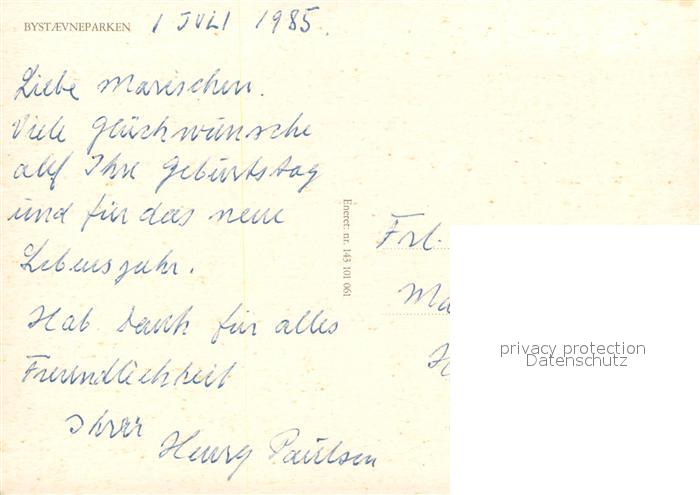 BYSTÆVNEPARKEN 1 JULI 1985.
Liebe Marischen.
Viele Glückwünsche
auf Ihre Geburtstag
und für das neue
Lebensjahr.
Hab Dank für alles
Freundlichkeit
Ihrer
Henry Paulsen
Eneret: nr. 143 101 061
Frl.
Ma
H
privacy protection
Datenschutz